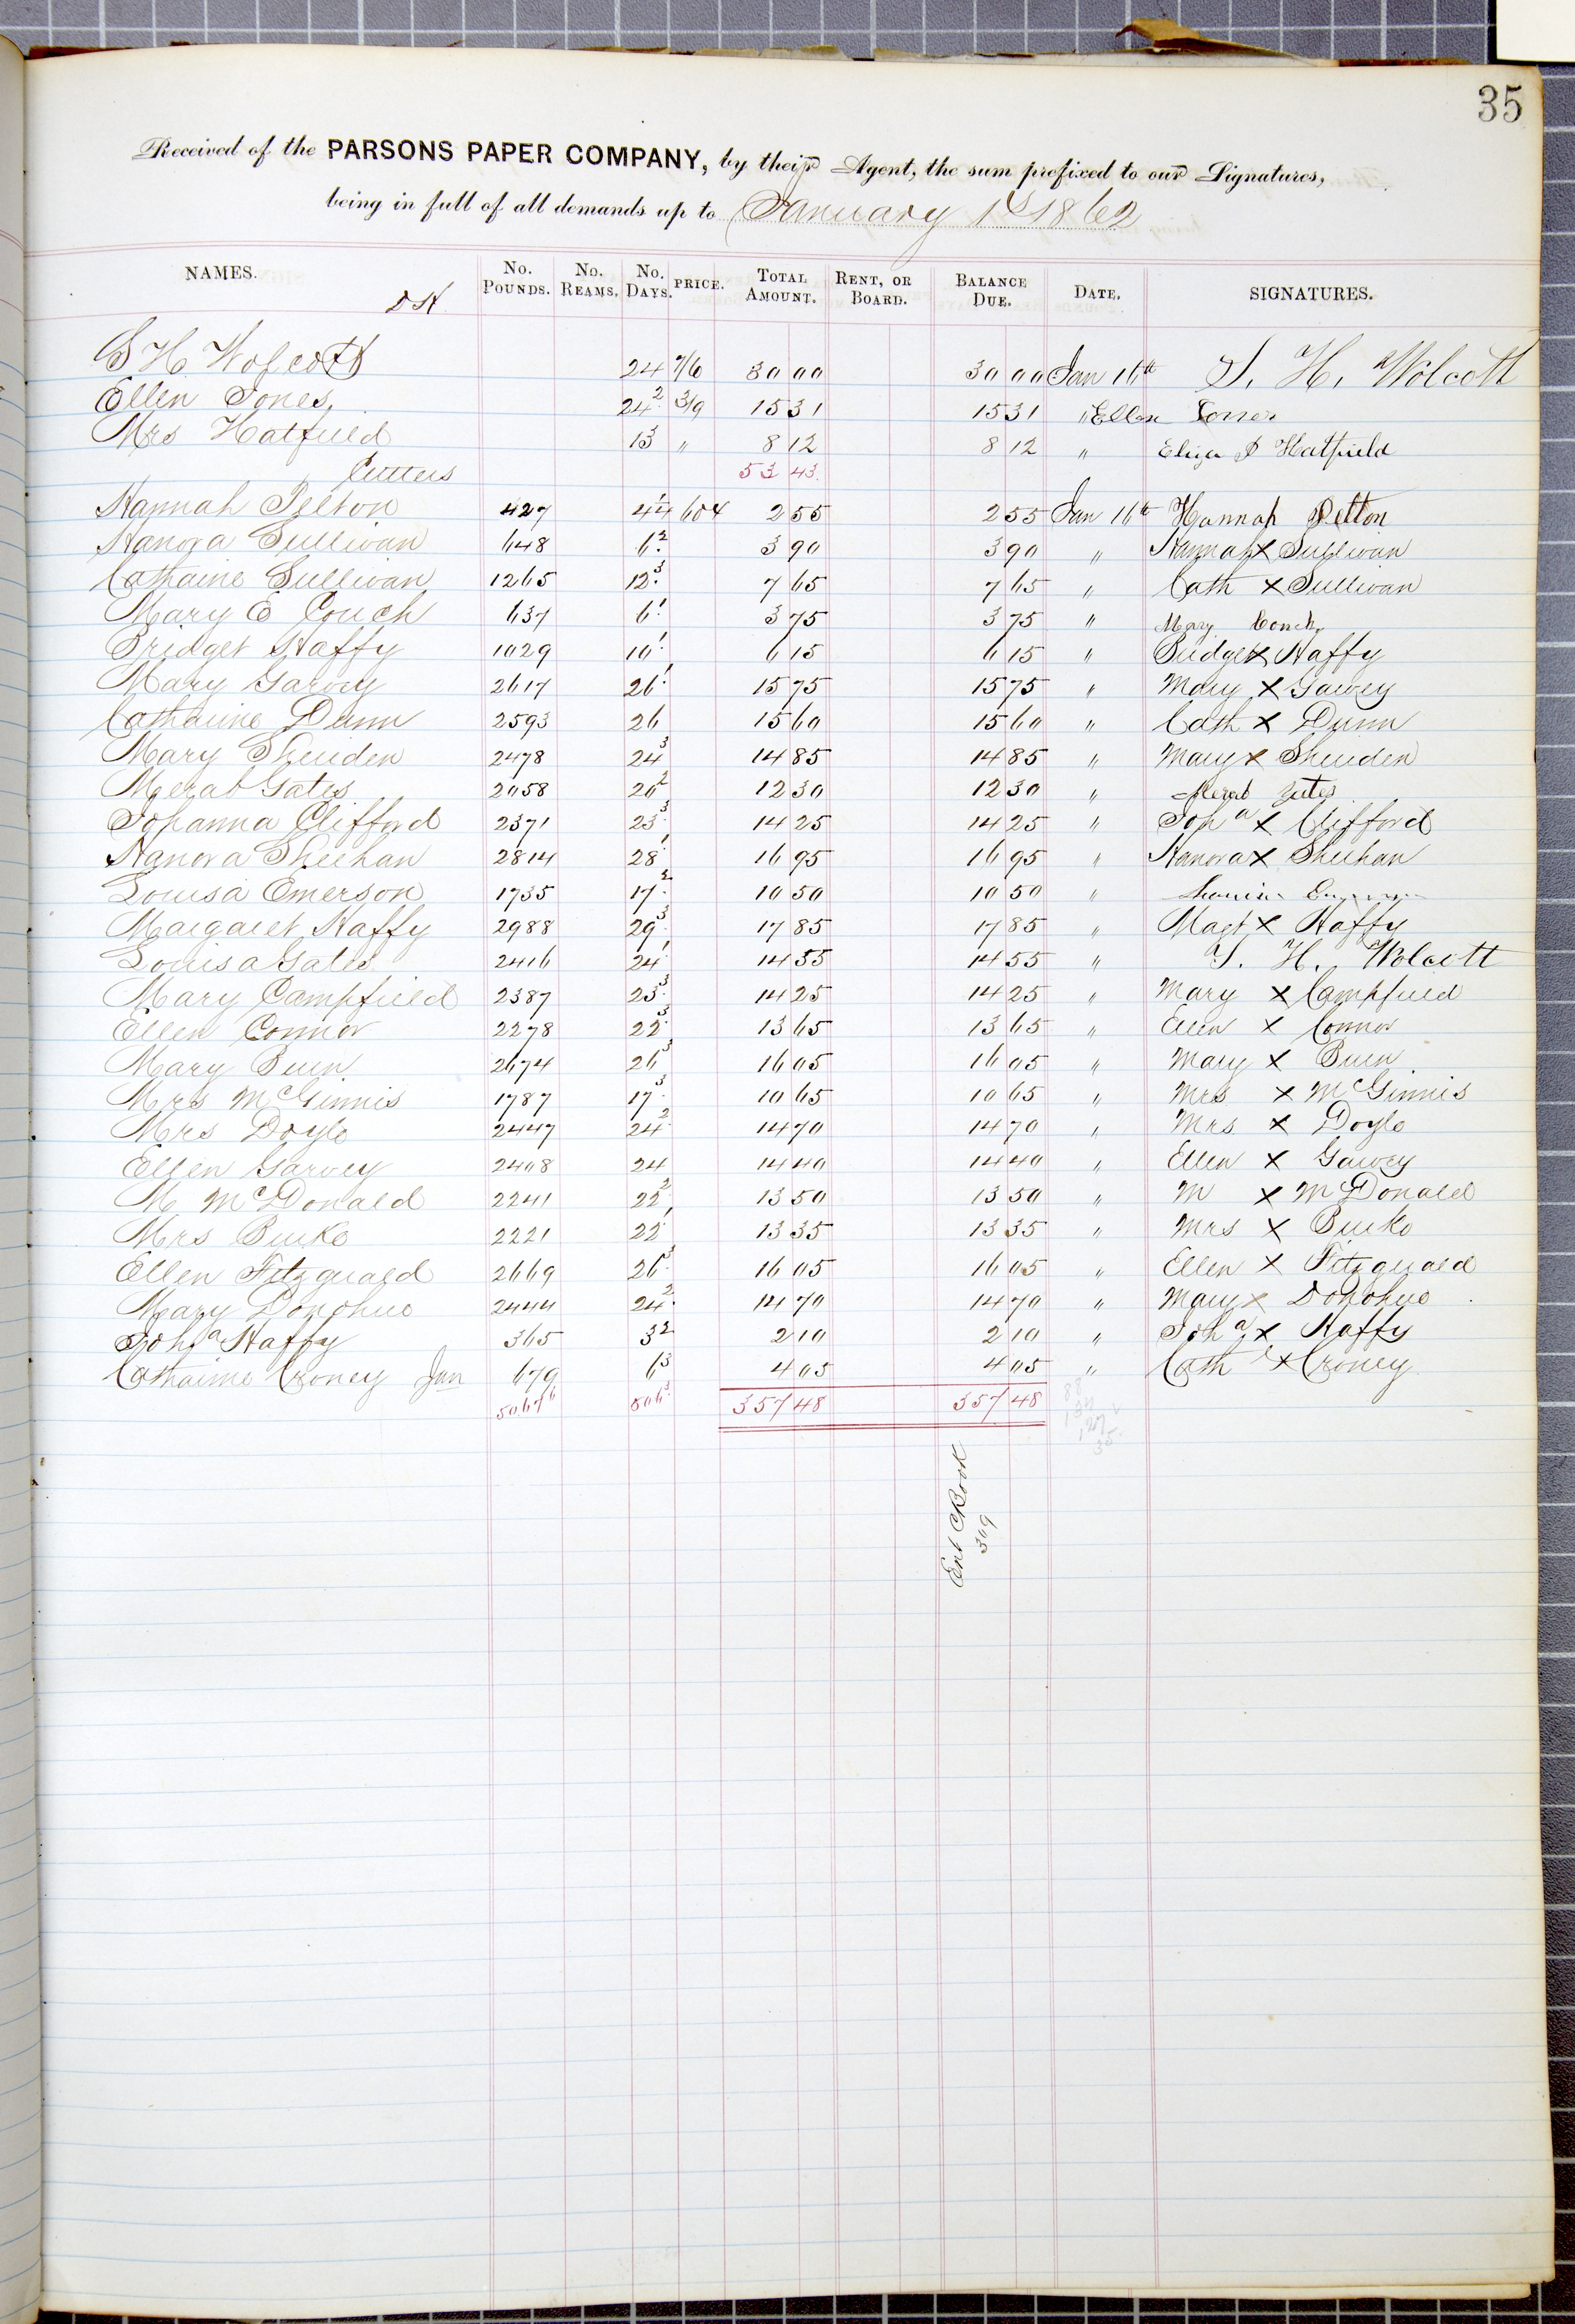 35
Received of the PARSONS PAPER COMPANY, by their Agent, the sum prefixed to our Signatures,
being in full of all demands up to January 1st 1862
NAMES. No. POUNDS. No. REAMS. No. DAYS. PRICE. TOTAL AMOUNT. RENT, OR BOARD. BALANCE DUE. DATE. SIGNATURES.
S H Wolcott 24 7/6 30 00 30 00 Jan 16th S. H. Wolcott
Ellen Jones 24 2 3/9 15 31 15 31 " Ellen Jones
Mrs Hatfield 13 " 8 12 8 12 " Eliza P Hatfield
Cutters 53 43
Hannah Pelton 427 4 1/4 604 2 55 2 55 Jan 16th Hannah Pelton
Hanora Sullivan 648 6 2 3 90 3 90 " Hannah X Sullivan
Catharine Sullivan 1265 12 3 7 65 7 65 " Cath X Sullivan
Mary E Couch 637 6 1 3 75 3 75 " Mary Couch
Bridget Haffy 1029 10 1 6 15 6 15 " Bridget X Haffy
Mary Garvey 2617 26 1 15 75 15 75 " Mary X Garvey
Catharine Dunn 2593 26 15 60 15 60 " Cath X Dunn
Mary Sheriden 2478 24 3 14 85 14 85 " Mary X Sheriden
Merab Gates 2058 20 2 12 30 12 30 " Merab Gates
Johanna Clifford 2371 23 3 14 25 14 25 " Joha X Clifford
Hanora Sheehan 2814 28 1 16 95 16 95 " Hanora X Sheehan
Louisa Emerson 1735 17 2 10 50 10 50 " Louisa Emerson
Margaret Haffy 2988 29 3 17 85 17 85 " Magt X Haffy
Louisa Gates 2416 24 1 14 55 14 55 " S. H. Wolcott
Mary Campfield 2387 23 3 14 25 14 25 " Mary X Campfield
Ellen Connor 2278 22 3 13 65 13 65 " Ellen X Connor
Mary Burn 2674 26 3 16 05 16 05 " Mary X Burn
Mrs McGinnis 1787 17 3 10 65 10 65 " Mrs X McGinnis
Mrs Doyle 2447 24 2 14 70 14 70 " Mrs X Doyle
Ellen Garvey 2408 24 14 40 14 40 " Ellen X Garvey
M McDonald 2241 22 2 13 50 13 50 " M X McDonald
Mrs Burke 2221 22 1 13 35 13 35 " Mrs X Burke
Ellen Fitzgerald 2669 26 3 16 05 16 05 " Ellen X Fitzgerald
Mary Donohue 2444 24 2 14 70 14 70 " Mary X Donohue
Joha Haffy 365 3 2 2 10 2 10 " Joha X Haffy
Catharine Croney Jan 679 6 3 4 05 4 05 " Cath X Croney
50676 506 3 357 48 357 48
Ent C Book
309